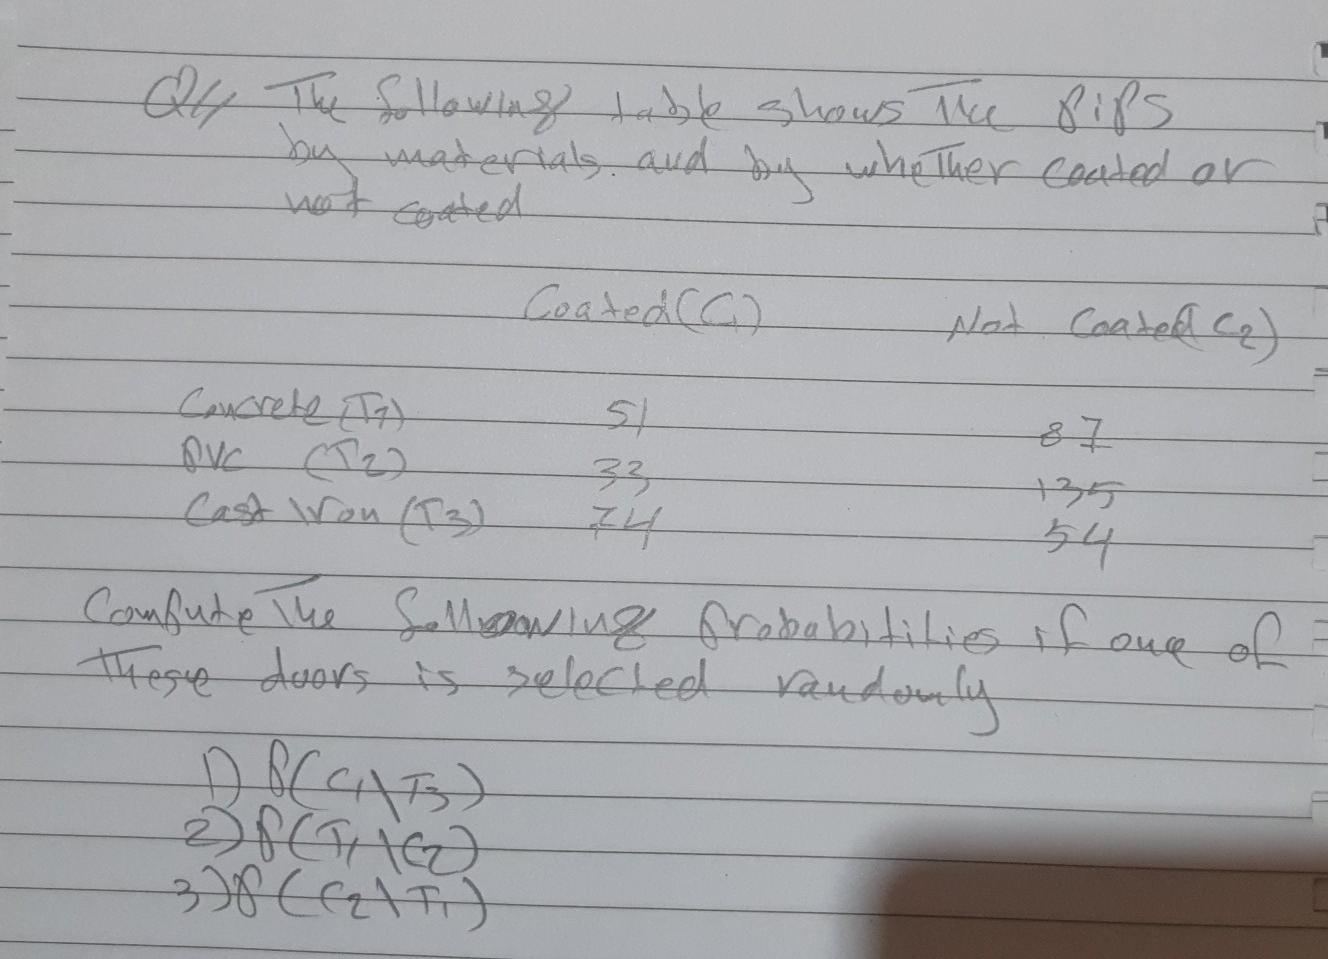 Q4/ The following table shows The pips
by materials. and by whether coated or
not coated
Coated (C1) Not Coated (C2)
Concrete (T1) 51 87
PVC (T2) 33 135
Cast Iron (T3) 74 54
Compute The following probabitilies if one of
These doors is selected randomly
1) P(C1\T3)
2) P(T1\C2)
3) P(C2\T1)